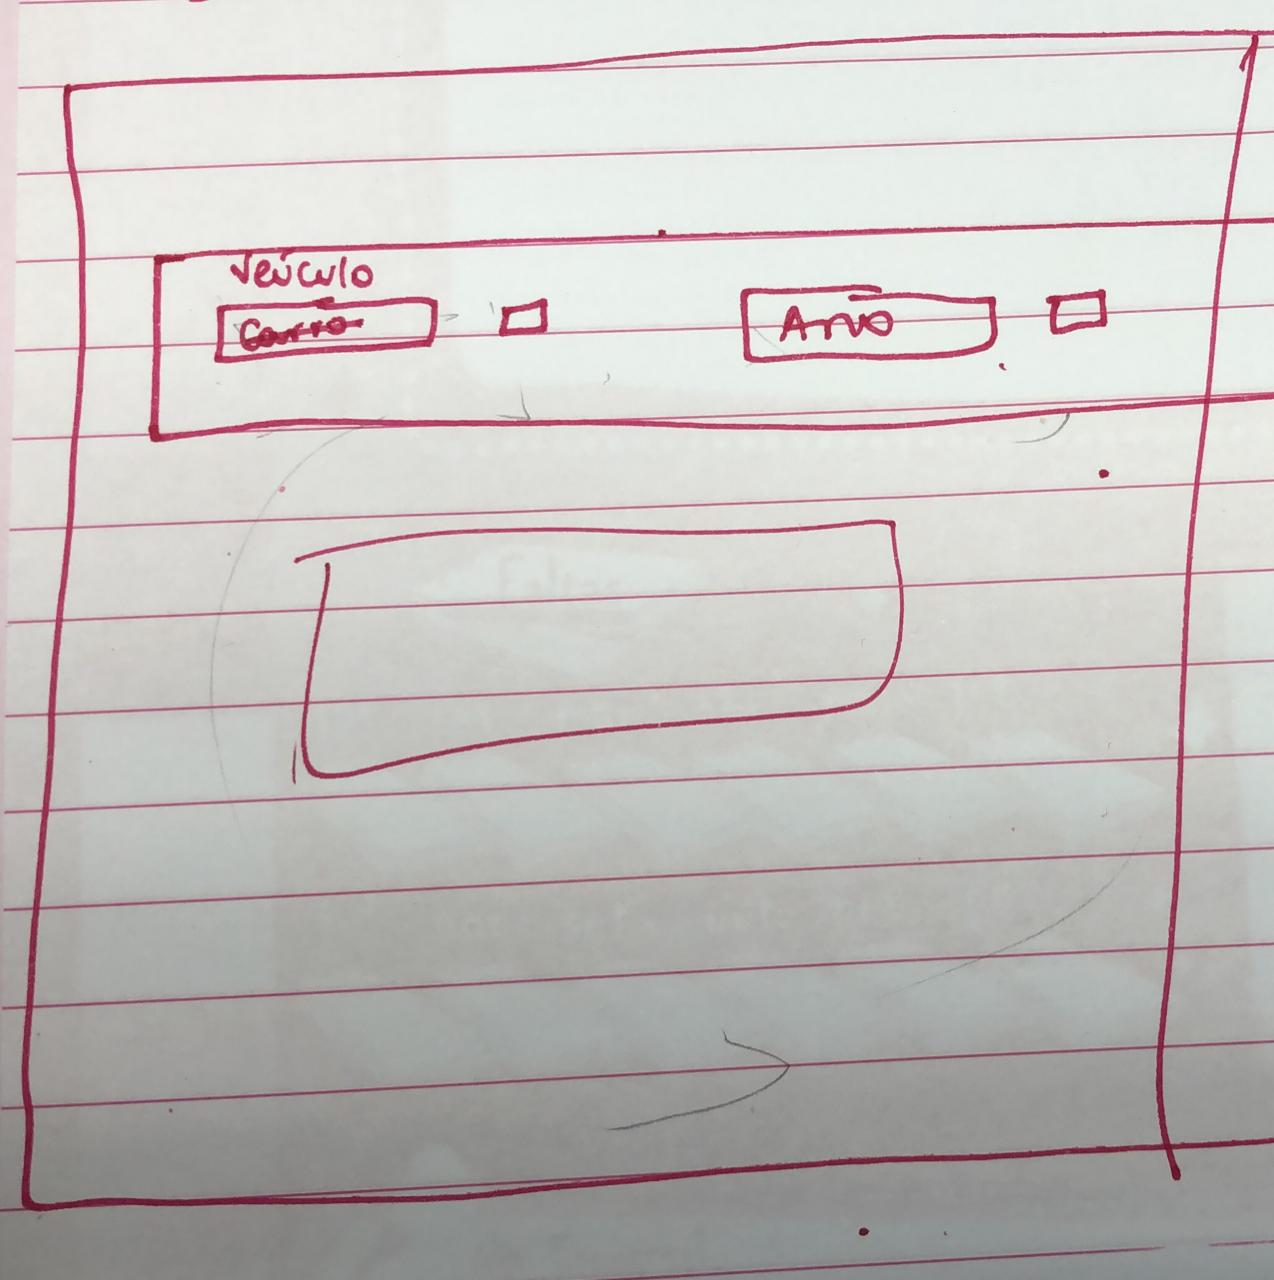 Veículo
Carro
Ano